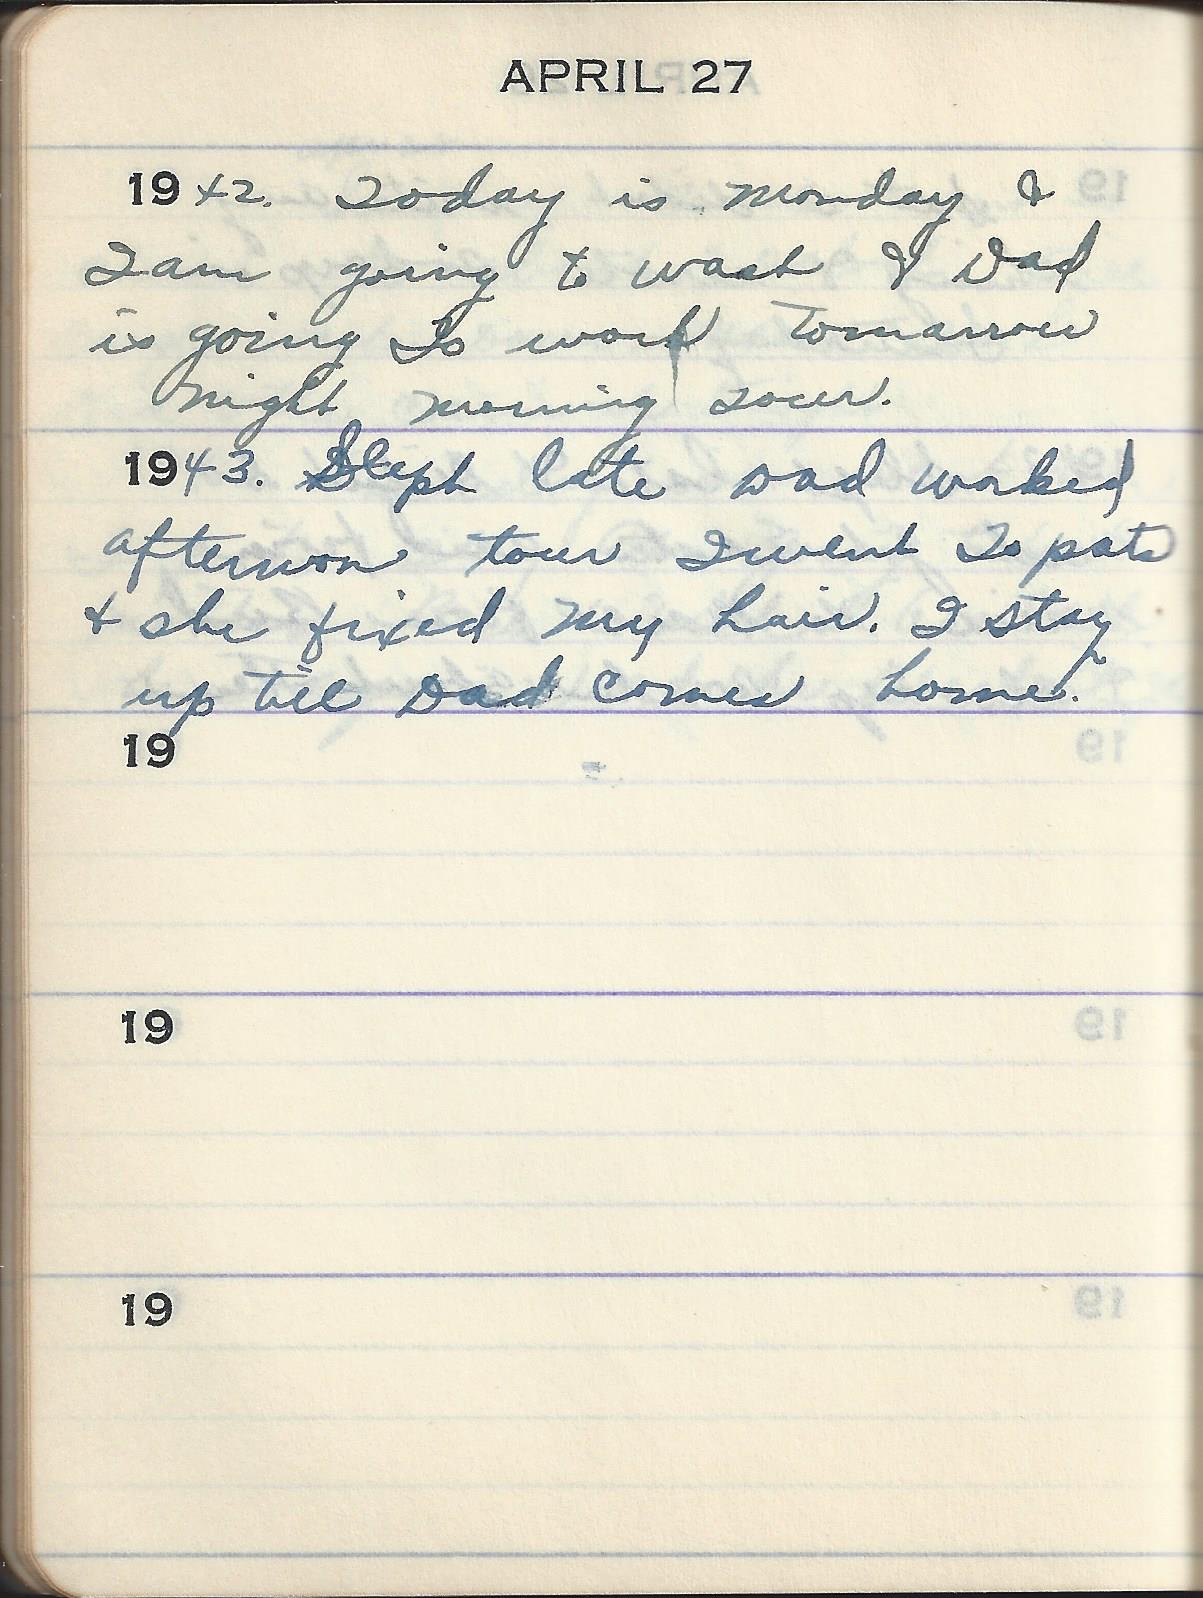 APRIL 27
1942. Today is Monday &
I am going to wash & Dad
is going to work tomarrow
night morning tour.
1943. Slept late Dad worked
afternoon tour I went to pats
& she fixed my hair. I stay
up till Dad comes home.
19
19
19